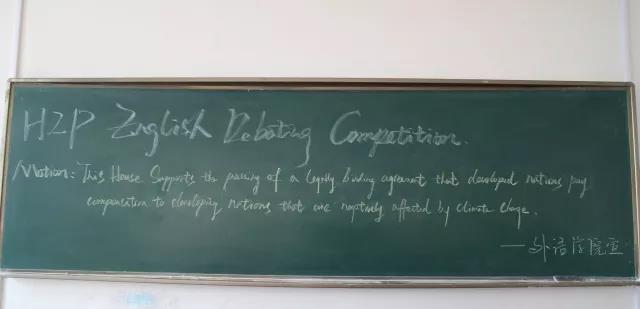 HZP English Debating Competition.
Motion: This House Supports the passing of a legally binding agreement that developed nations pay
compensation to developing nations that are negatively affected by climate change.
——外语学院宣